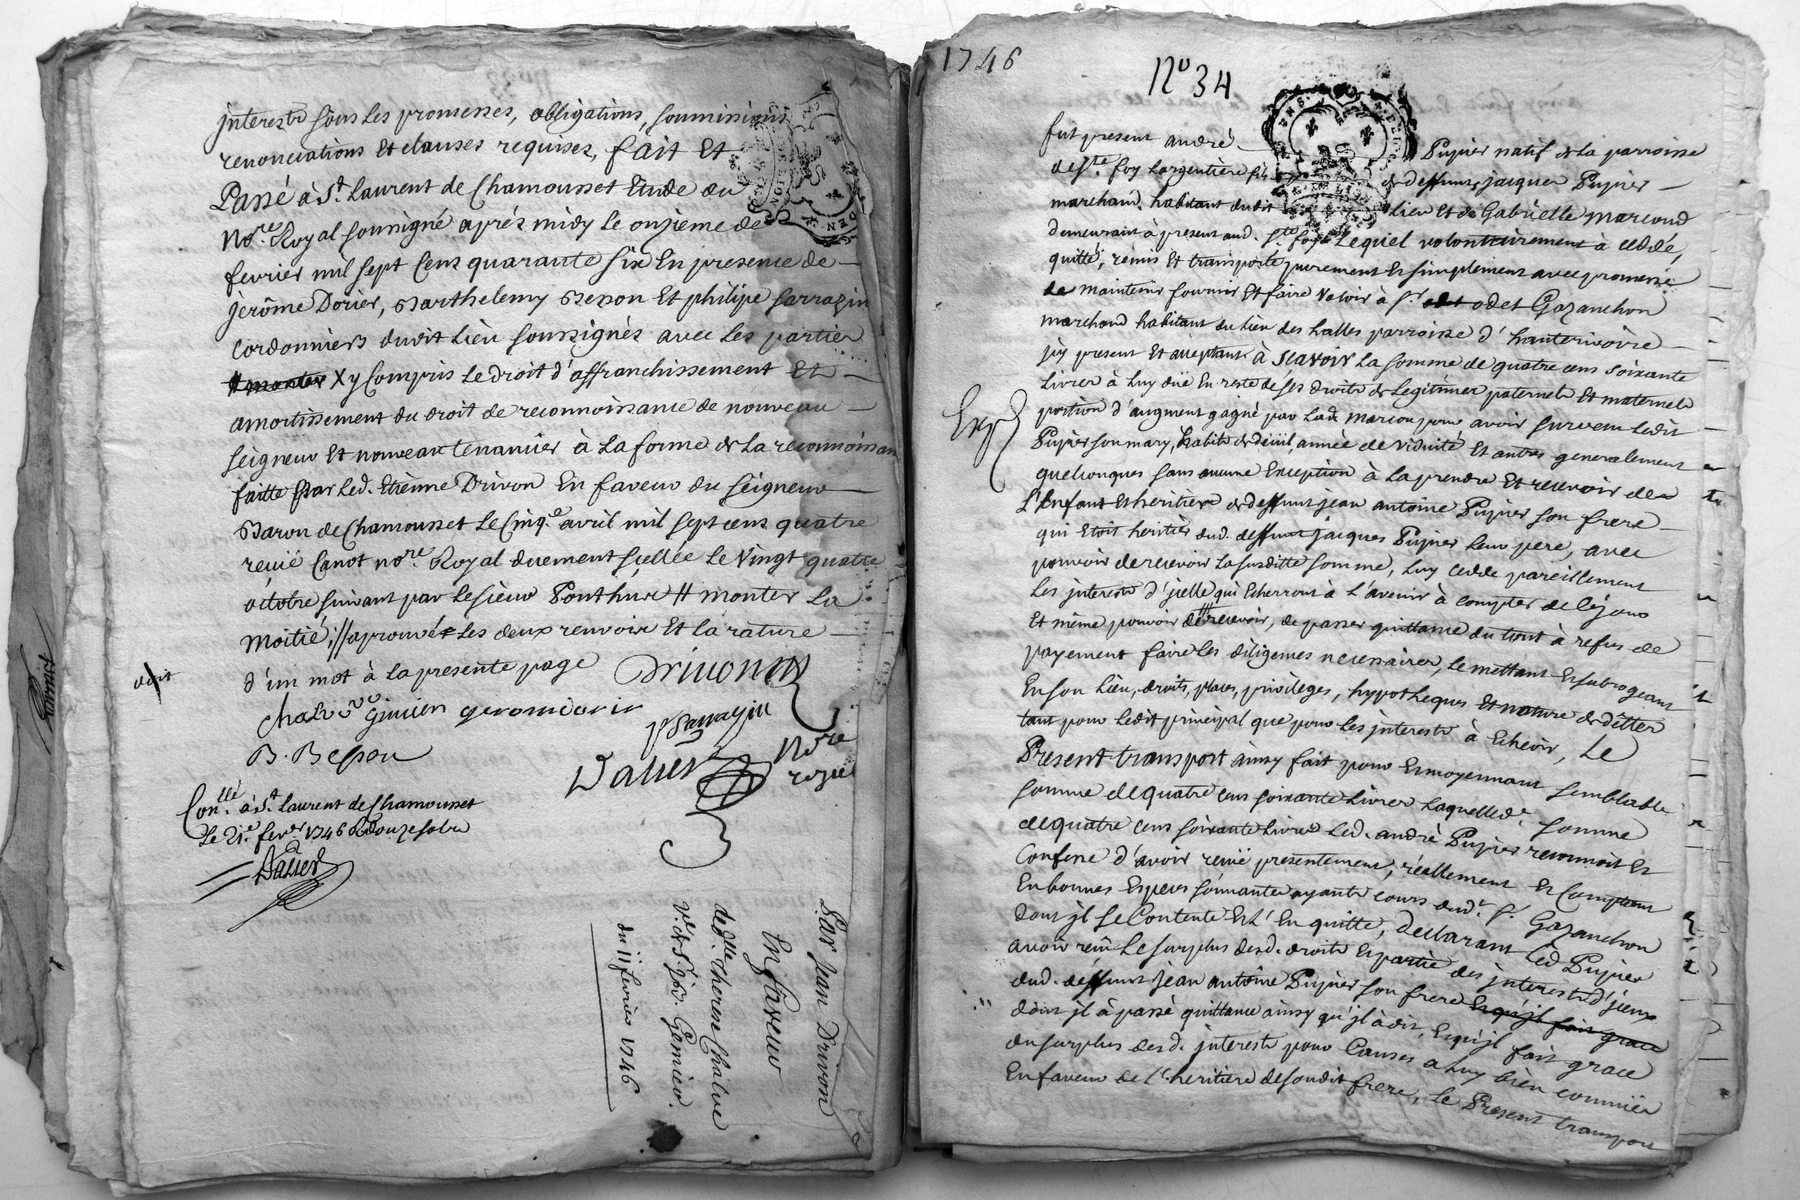 jnterests sous les promesses, obligations, soumissions
renonciations et clauses requises, fait et
Passé à St. Laurent de Chamousset Etude du
nore. Royal soussigné aprés midy le onzieme de
fevrier mil sept cens quarante six En presence de
jerôme Dorier, Barthelemy Besson et philipe sarrazin
cordonniers dudit lieu soussignés avec les parties
X y compris le droit d'affranchissement et
amortissement du droit de reconnoissance de nouveau
seigneur et nouveau tenancier à la forme de la reconnoissan
faitte par led. Etienne Drivon En faveur du seigneur
Baron de Chamousset le cinq.e avril mil sept cens quatre
reçüe Canot nore. Royal duement scellée le vingt quatre
octobre suivant par le sieur Ponthus # monter la
moitié;// aprouvé les deux renvois et la rature
d'un mot à la presente page
Drivon
chalve giromdorir
B. Beson
p Sarrazin
Dalier nore
Conllé. à St. Laurent de Chamousset
Le 21.e fevr. 1746 R douze sols
Dalier
Par jean Drivon
En faveur
de dlle. therese Chalve
ve. de Sr.
du 11 fevrier 1746
1746
No 34
fut present andré Pupier natif de la parroisse
de Ste. foy Largentière fils de deffunt jacques Pupier
marchand habitant dudit lieu et de Gabrielle marcoud
demeurant à present aud. Ste. foy Lequel volontairement à ceddé,
quitté, remis et transporté purement et simplement avec promesse
de maintenir fournir et faire valoir à Sr. odet Gazanchon
marchand habitant du lieu des halles parroisse d'hauterivoire
jcy present et acceptant à SCAVOIR la somme de quatre cens soixante
livres à luy düe En reste de ses droits de legitimes paternels et maternels
portion d'augment gagné par lad. marcou pour avoir survecu ledit
Pupier son mary, habits de deüil, année de viduité et autres generalement
quelconques sans aucune Exception à la prendre et recevoir de
l'Enfant et heritiere de deffunt jean antoine Pupier son frere
qui Etoit heritier dud. deffunt jacques Pupier leur pere, avec
pouvoir de recevoir la susditte somme, luy cedde pareillement
les jnterests d'jcelle qui Echerront à l'avenir à compter de cejour
et même pouvoir de recevoir, de passer quittance du tout à refus de
payement faire les diligences necessaires, le mettant et subrogeant
En son lieu, droits, places, privileges, hypotheques et nature de dettes
tant pour ledit principal que pour les jnterests à Echeoir, Le
Present transport ainsy fait pour et moyennant semblable
somme de quatre cens soixante livres laquelle de. somme
de quatre cens soixante livres led. andré Pupier reconnoit et
Confesse d'avoir reçüe presentement, réellement et comptant
En bonnes Especes sonnantes ayants cours dud. Sr. Gazanchon
dont jl se Contente et l'En quitte, declarant led Pupier
avoir reçu le surplus desd. droits et partie des jnterests d'jceux
dud. deffunt jean antoine Pupier son frere et qu'jl fait grace
dont jl à passé quittance ainsy qu'jl à dit, et qu'jl fait grace
du surplus desd. jnterests pour Causes a luy bien connües
En faveur de l'heritiere de soudit frere, Le Present transport